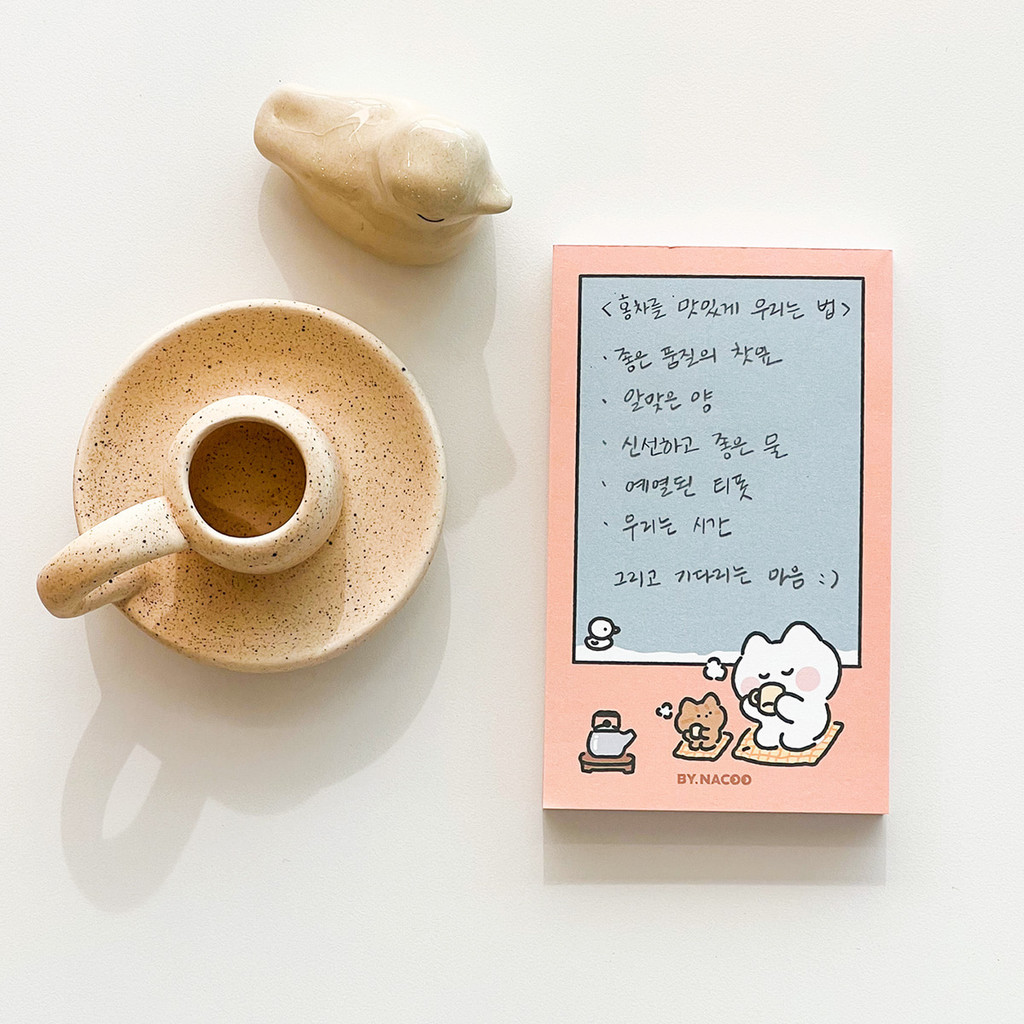 <홍차를 맛있게 우리는 법>
· 좋은 품질의 찻잎
· 알맞은 양
· 신선하고 좋은 물
· 예열된 티폿
· 우리는 시간
그리고 기다리는 마음 :)
BY.NACOO